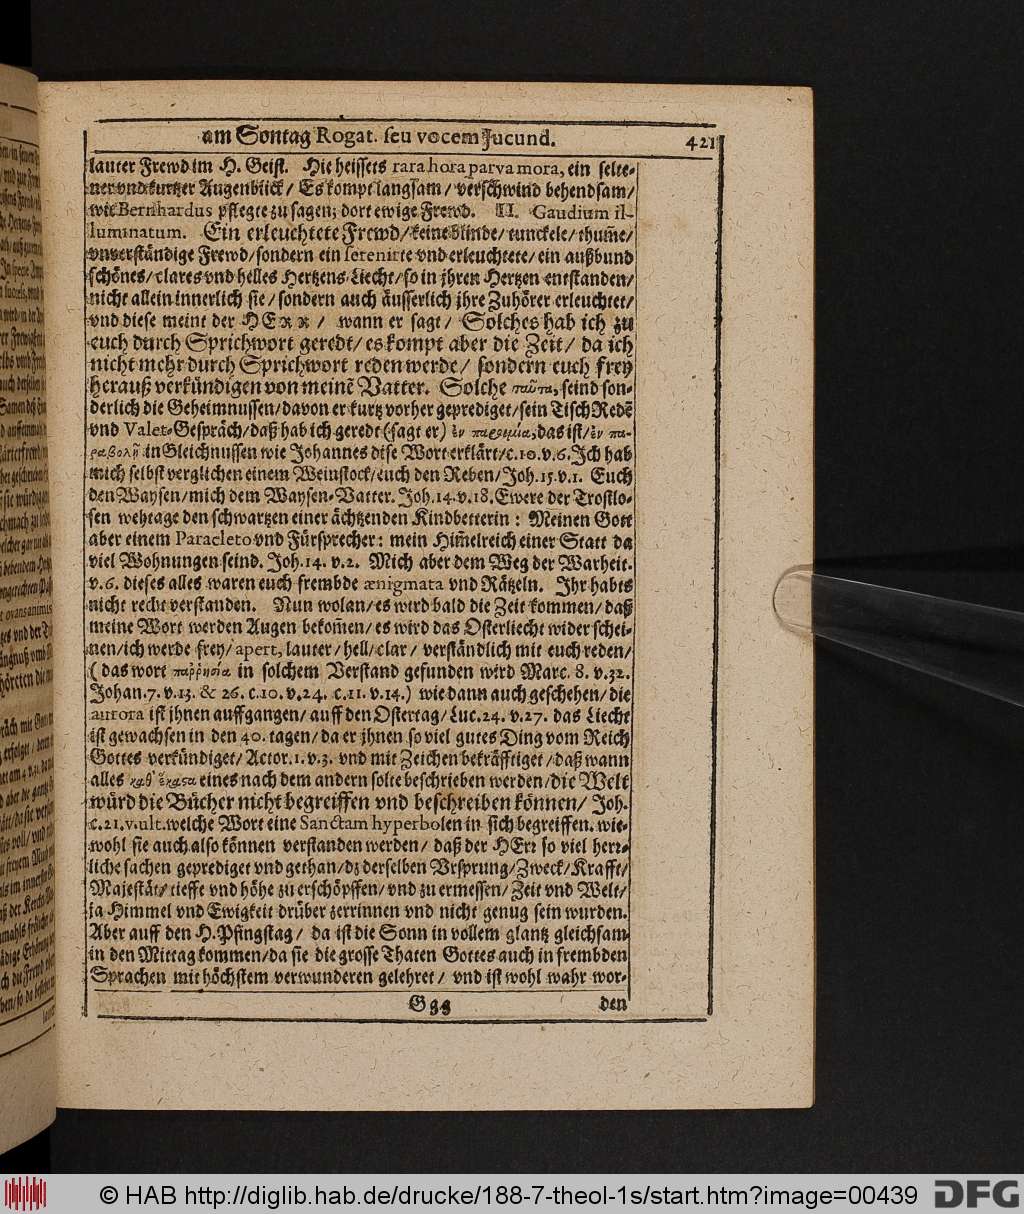 am Sontag Rogat. seu vocem Jucund. 421
lauter Frewd im H. Geist. Hie heissets rara hora parva mora, ein selte-
ner vnd kurtzer Augenblick/ Es kompt langsam/ verschwind behendsam/
wie Bernhardus pflegte zu sagen; dort ewige Frewd. II. Gaudium il-
luminatum. Ein erleuchtete Frewd/ keine blinde/ tunckele/ thum̃e/
vnverständige Frewd/ sondern ein serenitte vnd erleuchtete/ ein außbund
schönes/ clares vnd helles Hertzens-Liecht/ so in jhren Hertzen entstanden/
nicht allein innerlich sie/ sondern auch äusserlich jhre Zuhörer erleuchtet/
vnd diese meint der HErr/ wann er sagt/ Solches hab ich zu
euch durch Sprichwort geredt/ es kompt aber die Zeit/ da ich
nicht mehr durch Sprichwort reden werde/ sondern euch frey
herauß verkündigen von meinẽ Vatter. Solche ταῦτα, seind son-
derlich die Geheimnussen/ davon er kurtz vorher geprediget/ sein Tisch Redẽ
vnd Valet-Gespräch/ daß hab ich geredt (sagt er) ἐν παροιμία, das ist/ ἐν πα-
ραβολῇ in Gleichnussen wie Johannes dise Wort erklärt/ c. 10. v. 6. Ich hab
mich selbst verglichen einem Weinstock/ euch den Reben/ Joh. 15. v. 1. Euch
den Waysen/ mich dem Waysen-Vatter. Joh. 14. v. 18. Ewere der Trostlo-
sen wehtage den schwartzen einer ächtzenden Kindbetterin: Meinen Gott
aber einem Paracleto vnd Fürsprecher: mein Him̃elreich einer Statt da
viel Wohnungen seind. Joh. 14. v. 2. Mich aber dem Weg der Warheit.
v. 6. dieses alles waren euch frembde ænigmata vnd Rätzeln. Ihr habts
nicht recht verstanden. Nun wolan/ es wird bald die Zeit kommen/ daß
meine Wort werden Augen bekom̃en/ es wird das Osterliecht wider schei-
nen/ ich werde frey/ apert, lauter/ hell/ clar/ verständlich mit euch reden/
(das wort παῤῥησία in solchem Verstand gefunden wird Marc. 8. v. 32.
Johan. 7. v. 13. & 26. c. 10. v. 24. c. 11. v. 14.) wie dann auch geschehen/ die
aurora ist jhnen auffgangen/ auff den Ostertag/ Luc. 24. v. 27. das Liecht
ist gewachsen in den 40. tagen/ da er jhnen so viel gutes Ding vom Reich
Gottes verkündiget/ Actor. 1. v. 3. vnd mit Zeichen bekräfftiget/ daß wann
alles καθ' ἕκαστα eines nach dem andern solte beschrieben werden/ die Welt
würd die Bücher nicht begreiffen vnd beschreiben können/ Joh.
c. 21. v. ult. welche Wort eine Sanctam hyperbolen in sich begreiffen. wie-
wohl sie auch also können verstanden werden/ daß der HErr so viel herr-
liche sachen geprediget vnd gethan/ dz derselben Vrsprung/ Zweck/ Krafft/
Majestät/ tieffe vnd höhe zu erschöpffen/ vnd zu ermessen/ Zeit vnd Welt/
ja Himmel vnd Ewigkeit drüber zerrinnen vnd nicht genug sein wurden.
Aber auff den H. Pfingstag/ da ist die Sonn in vollem glantz gleichsam
in den Mittag kommen/ da sie die grosse Thaten Gottes auch in frembden
Sprachen mit höchstem verwunderen gelehret/ vnd ist wohl wahr wor-
Ggg den
© HAB http://diglib.hab.de/drucke/188-7-theol-1s/start.htm?image=00439 DFG